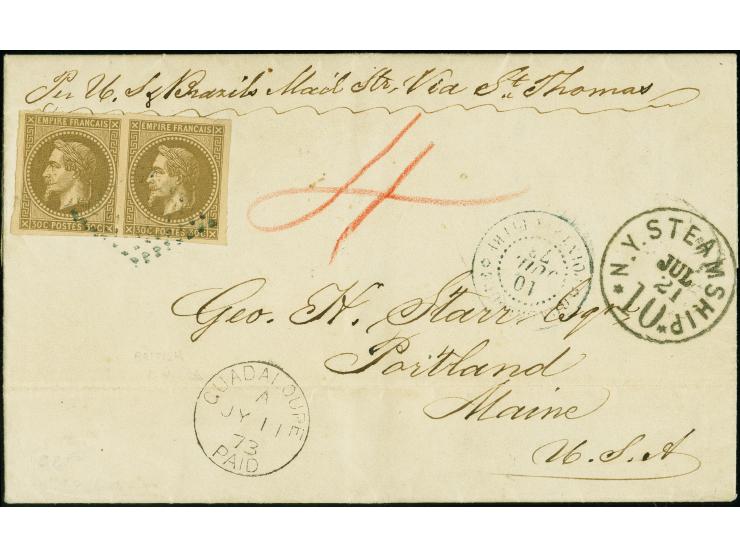 Per U.S. & Brazils Mail Str, Via St. Thomas
EMPIRE FRANÇAIS EMPIRE FRANÇAIS
30C POSTES 30C 30C POSTES 30C
4
10
JUIL
73
N.Y. STEAMSHIP
JUL
21
10
Geo. H. Starr Esqr
Portland
Maine
U.S.A
GUADALOUPE
A
JY 11
73
PAID